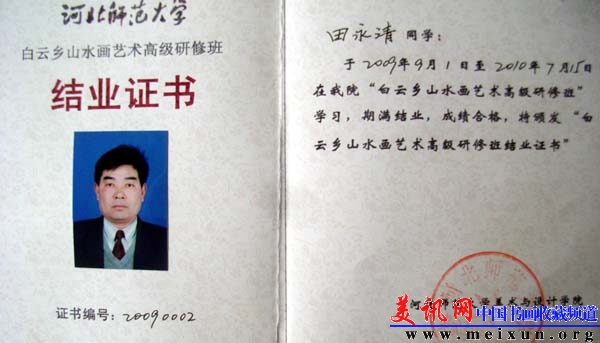 河北师范大学
白云乡山水画艺术高级研修班
结业证书
证书编号：20090002
田永清 同学：
于2009年9月1日至2010年7月15日
在我院“白云乡山水画艺术高级研修班”
学习，期满结业，成绩合格，特颁发“白
云乡山水画艺术高级研修班结业证书”
河北师范大学美术与设计学院
美讯网 中国书画收藏频道
www.meixun.org